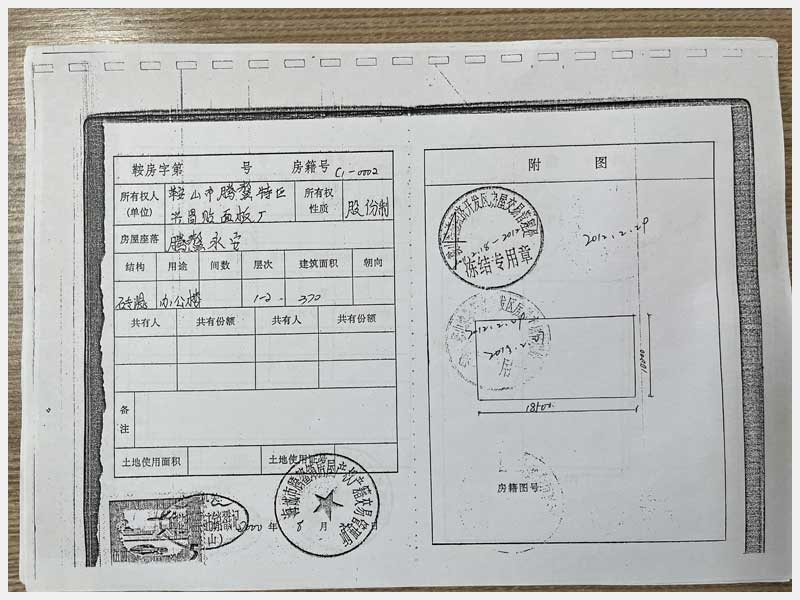 鞍房字第 号 房籍号 C1-0002
所有权人
(单位)
鞍山市腾鳌特区
兴昌胶面板厂
所有权
性质
股份制
房屋座落 腾鳌永安
结构 用途 间数 层次 建筑面积 朝向
砖混 办公楼 1-2 370
共有人 共有份额 共有人 共有份额
备
注
土地使用面积 土地使用证号
2000 年 8 月 日
附 图
冻结专用章
2012.2.29
10000
18500
房籍图号